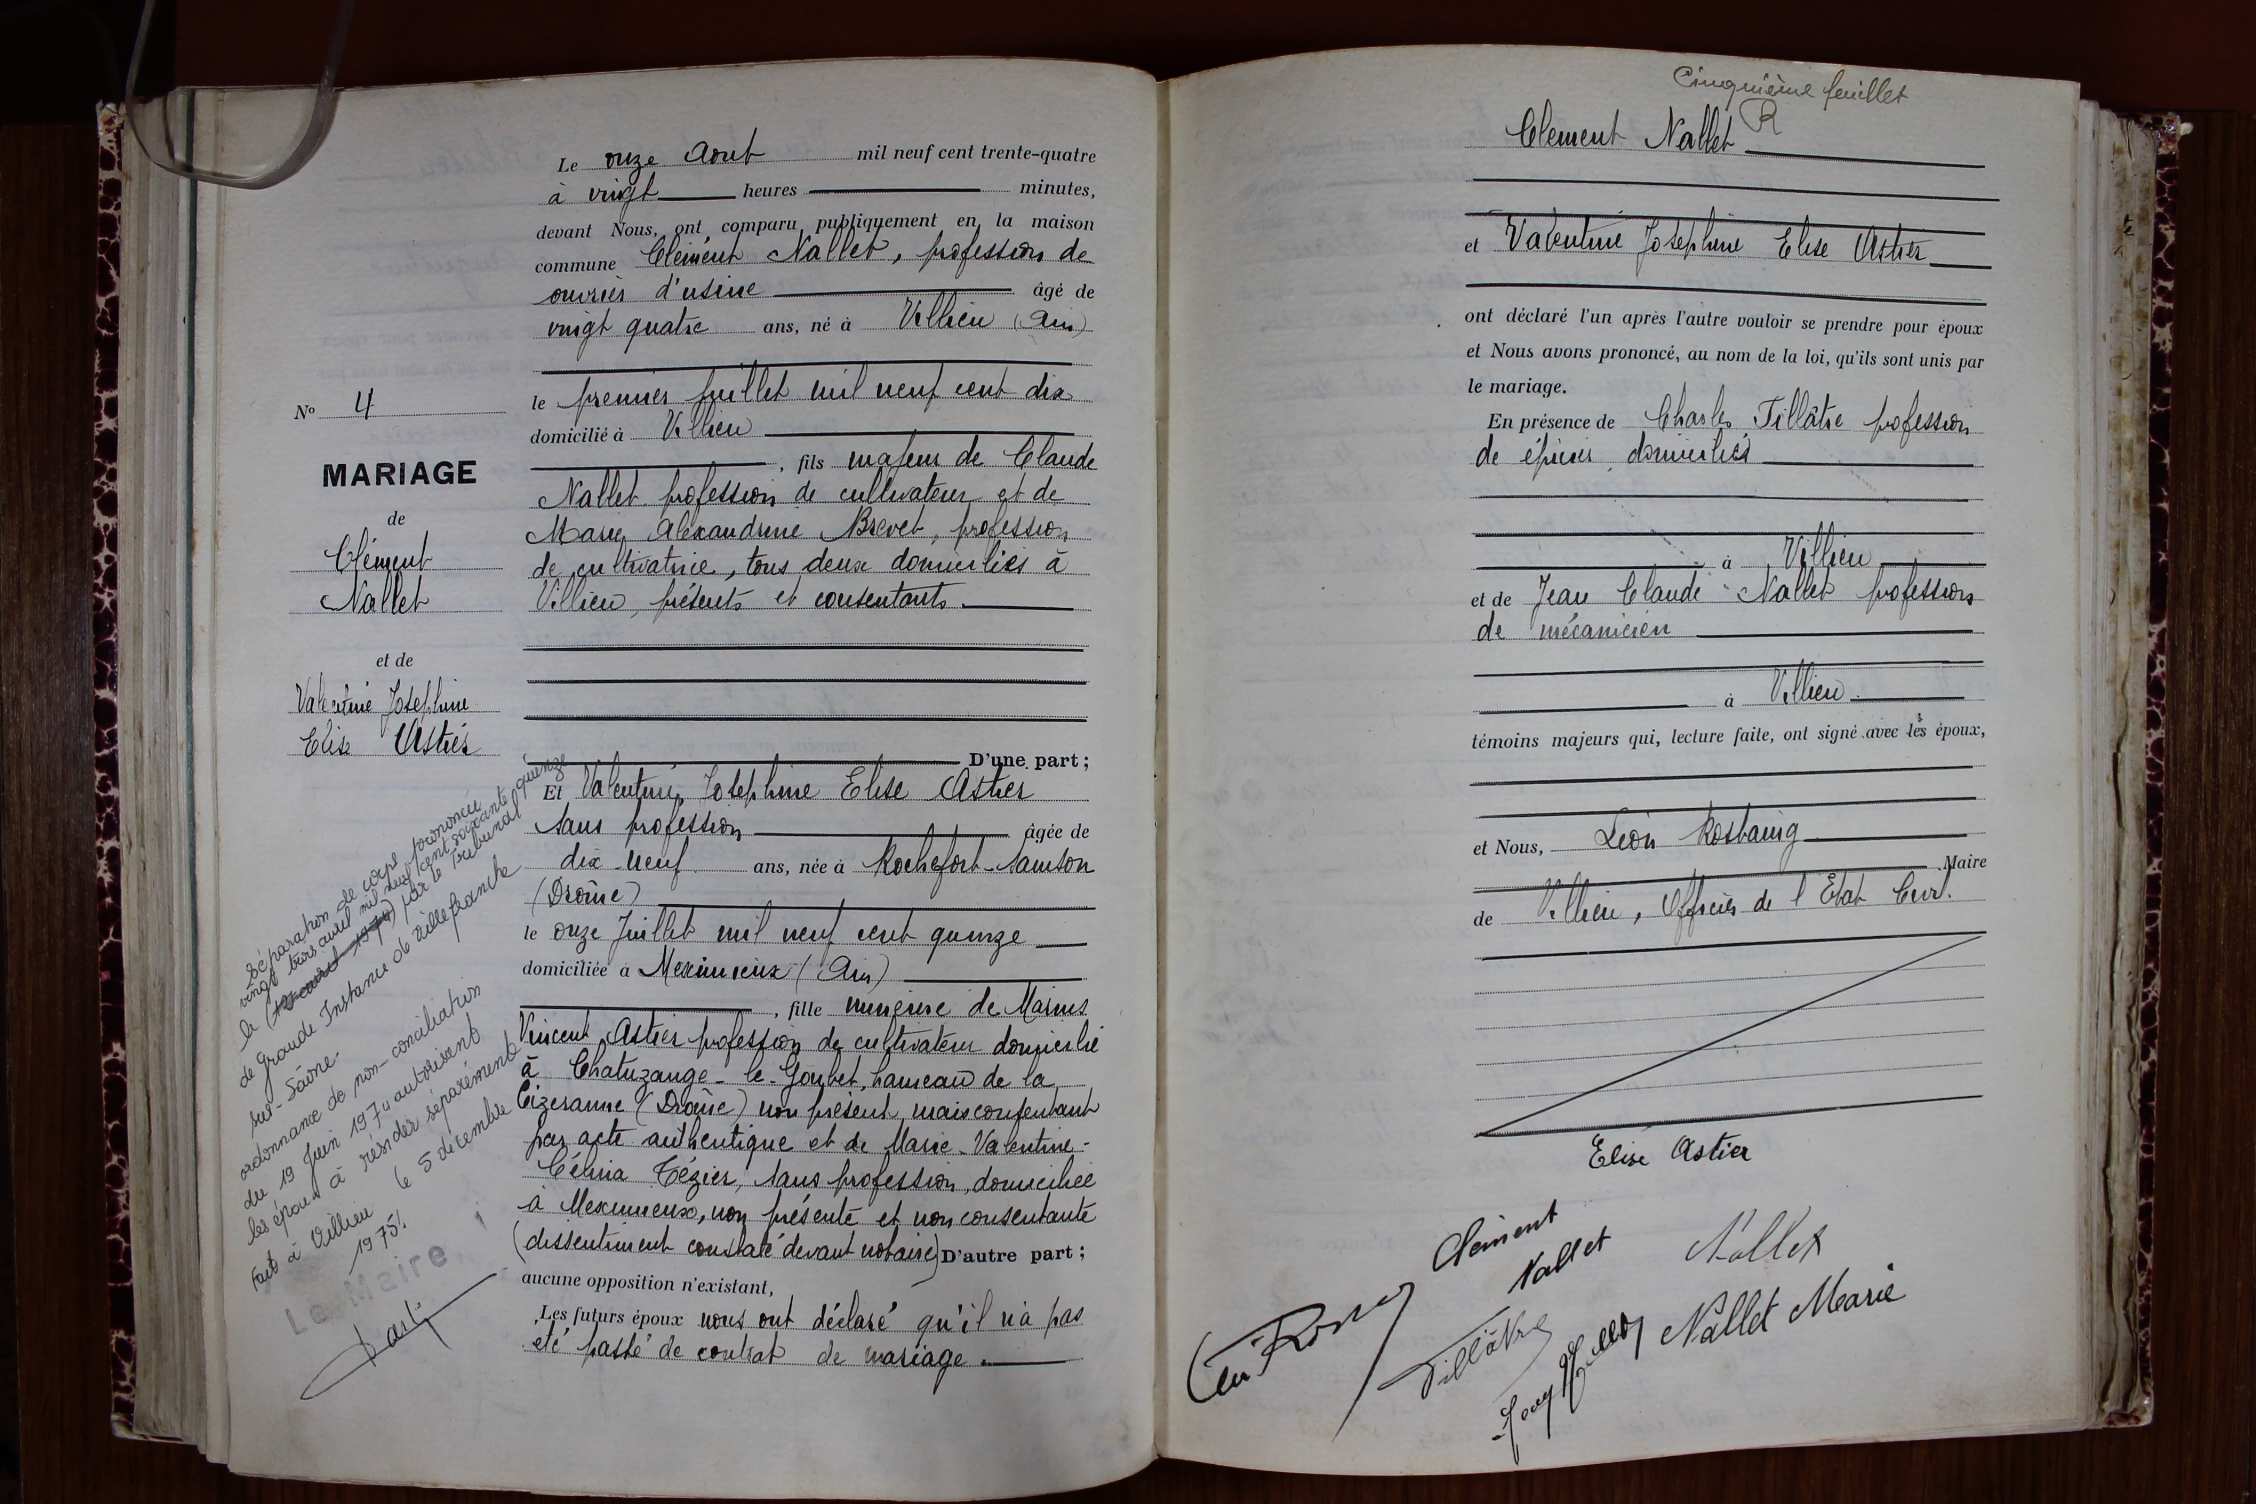 Le onze Aout mil neuf cent trente-quatre
à vingt heures minutes,
devant Nous, ont comparu publiquement en la maison
commune Clément Nallet, profession de
ouvrier d'usine âgé de
vingt quatre ans, né à Villieu (Ain)
le premier juillet mil neuf cent dix
domicilié à Villieu
, fils majeur de Claude
Nallet profession de cultivateur et de
Marie Alexandrine Brevet, profession
de cultivatrice, tous deux domiciliés à
Villieu, présents et consentants.
D'une part;
Et Valentine Josephine Elise Astier
sans profession âgée de
dix neuf ans, née à Rochefort-Samson
(Drôme)
le onze Juillet mil neuf cent quinze
domiciliée à Meximieux (Ain)
, fille mineure de Marius
Vincent Astier profession de cultivateur domicilié
à Chatuzange-le-Goubet, hameau de la
Cizeranne (Drôme) non présent mais consentant
par acte authentique et de Marie-Valentine-
Célina Tézier, sans profession, domiciliée
à Meximieux, non présente et non consentante
(dissentiment constaté devant notaire) D'autre part;
aucune opposition n'existant,
Les futurs époux nous ont déclaré qu'il n'a pas
été passé de contrat de mariage.
No 4
MARIAGE
de
Clément
Nallet
et de
Valentine Josephine
Elise Astier
Séparation de corps prononcée
vingt trois avril mil neuf cent soixante quinze
le (19 avril 1974) par le Tribunal
de Grande Instance de Villefranche
sur-Saône.
ordonnance de non-conciliation
du 19 Juin 1974 autorisant
les époux à résider séparément
Fait à Villieu le 5 décembre
1975.
Le Maire
Cinquième feuillet
R
Clement Nallet
et Valentine Josephine Elise Astier
ont déclaré l'un après l'autre vouloir se prendre pour époux
et Nous avons prononcé, au nom de la loi, qu'ils sont unis par
le mariage.
En présence de Charles Tillâtre profession
de épicier domiciliés
à Villieu
et de Jean Claude Nallet profession
de mécanicien
à Villieu
témoins majeurs qui, lecture faite, ont signé avec les époux,
et Nous, Léon Rostaing
Maire
de Villieu, Officier de l'Etat Civil.
Elise Astier
Clément
Nallet
Nallet
Tillâtre
Nallet Marie